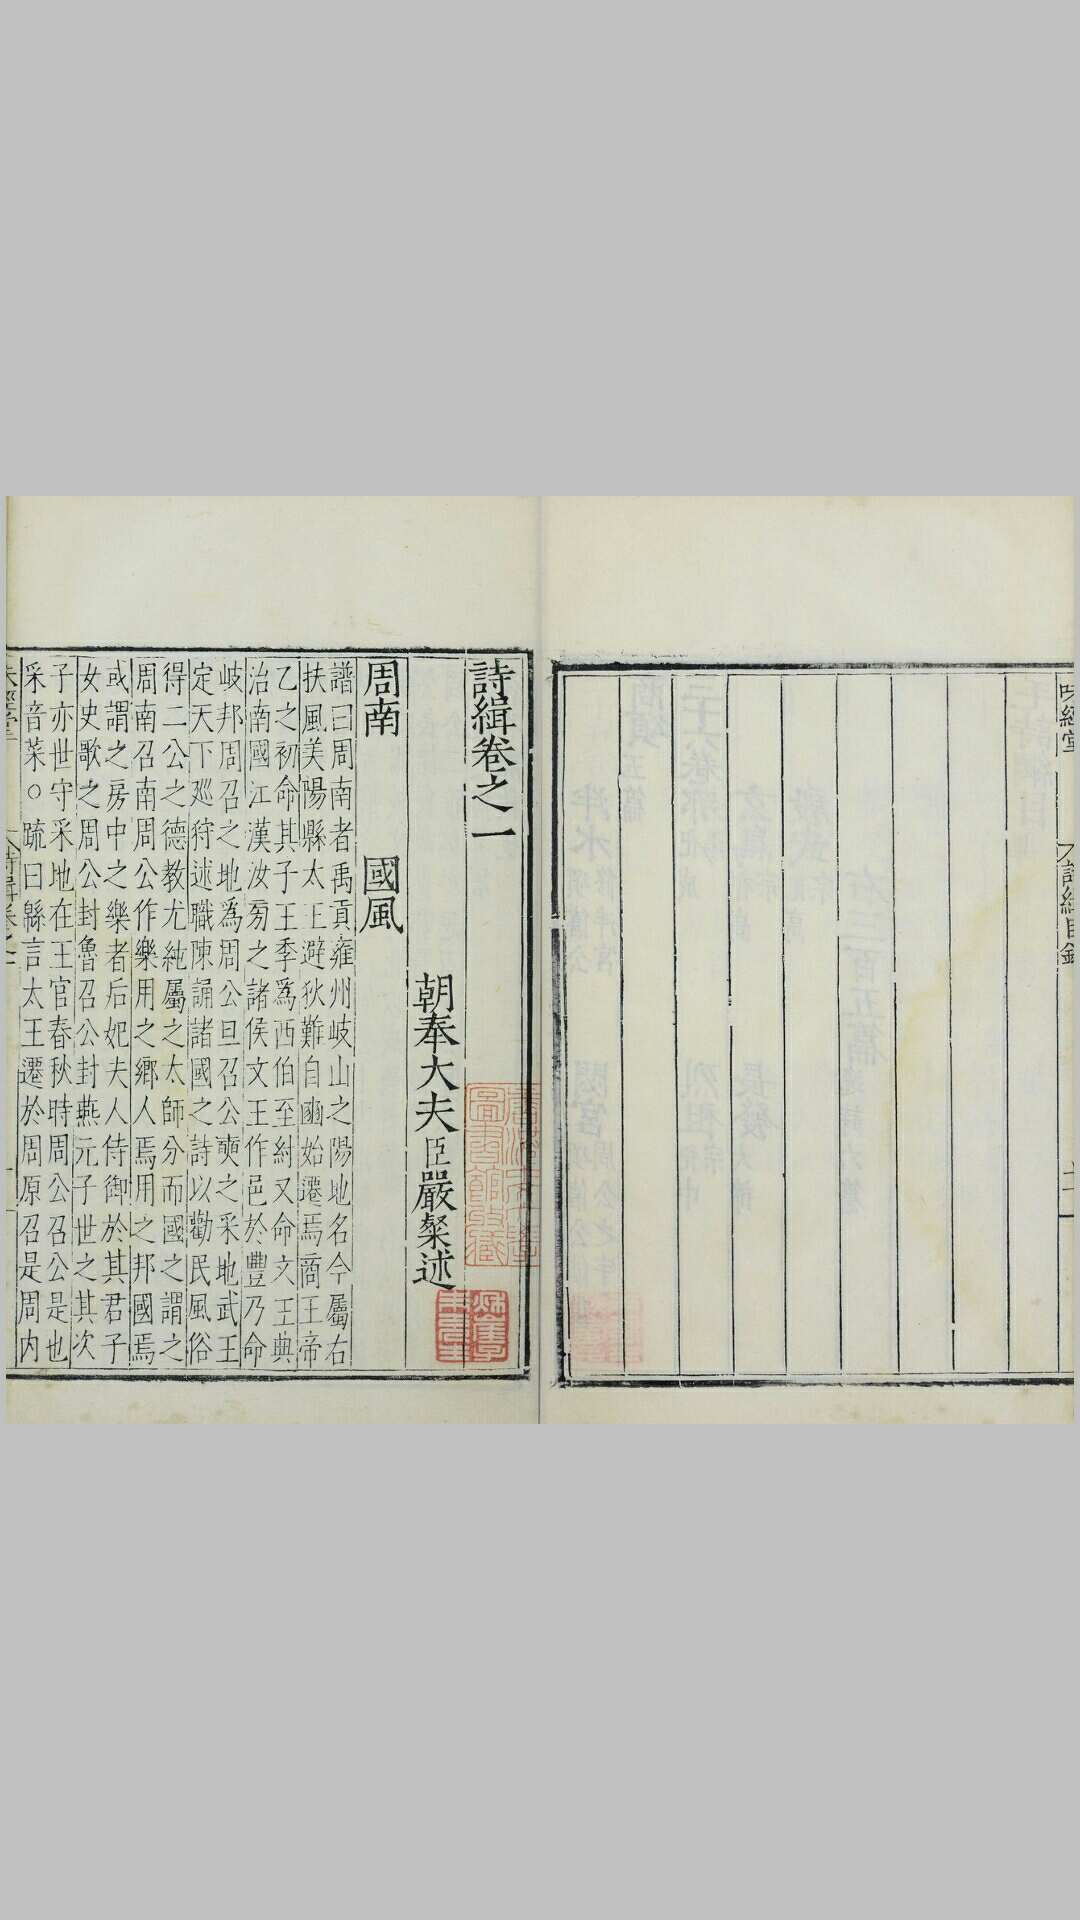 味經堂
詩緝目錄
詩緝卷之一
朝奉大夫臣嚴粲述
周南 國風
譜曰周南者禹貢雍州岐山之陽地名今屬右
扶風美陽縣太王避狄難自豳始遷焉商王帝
乙之初命其子王季爲西伯至紂又命文王典
治南國江漢汝旁之諸侯文王作邑於豐乃命
岐邦周召之地爲周公旦召公奭之采地武王
定天下廵狩述職陳誦諸國之詩以勸民風俗
得二公之德教尤純屬之太師分而國之謂之
周南召南周公作樂用之鄉人焉用之邦國焉
或謂之房中之樂者后妃夫人侍御於其君子
女史歌之周公封魯召公封燕元子世之其次
子亦世守采地在王官春秋時周公召公是也
采音菜○疏曰緜言太王遷於周原召是周内